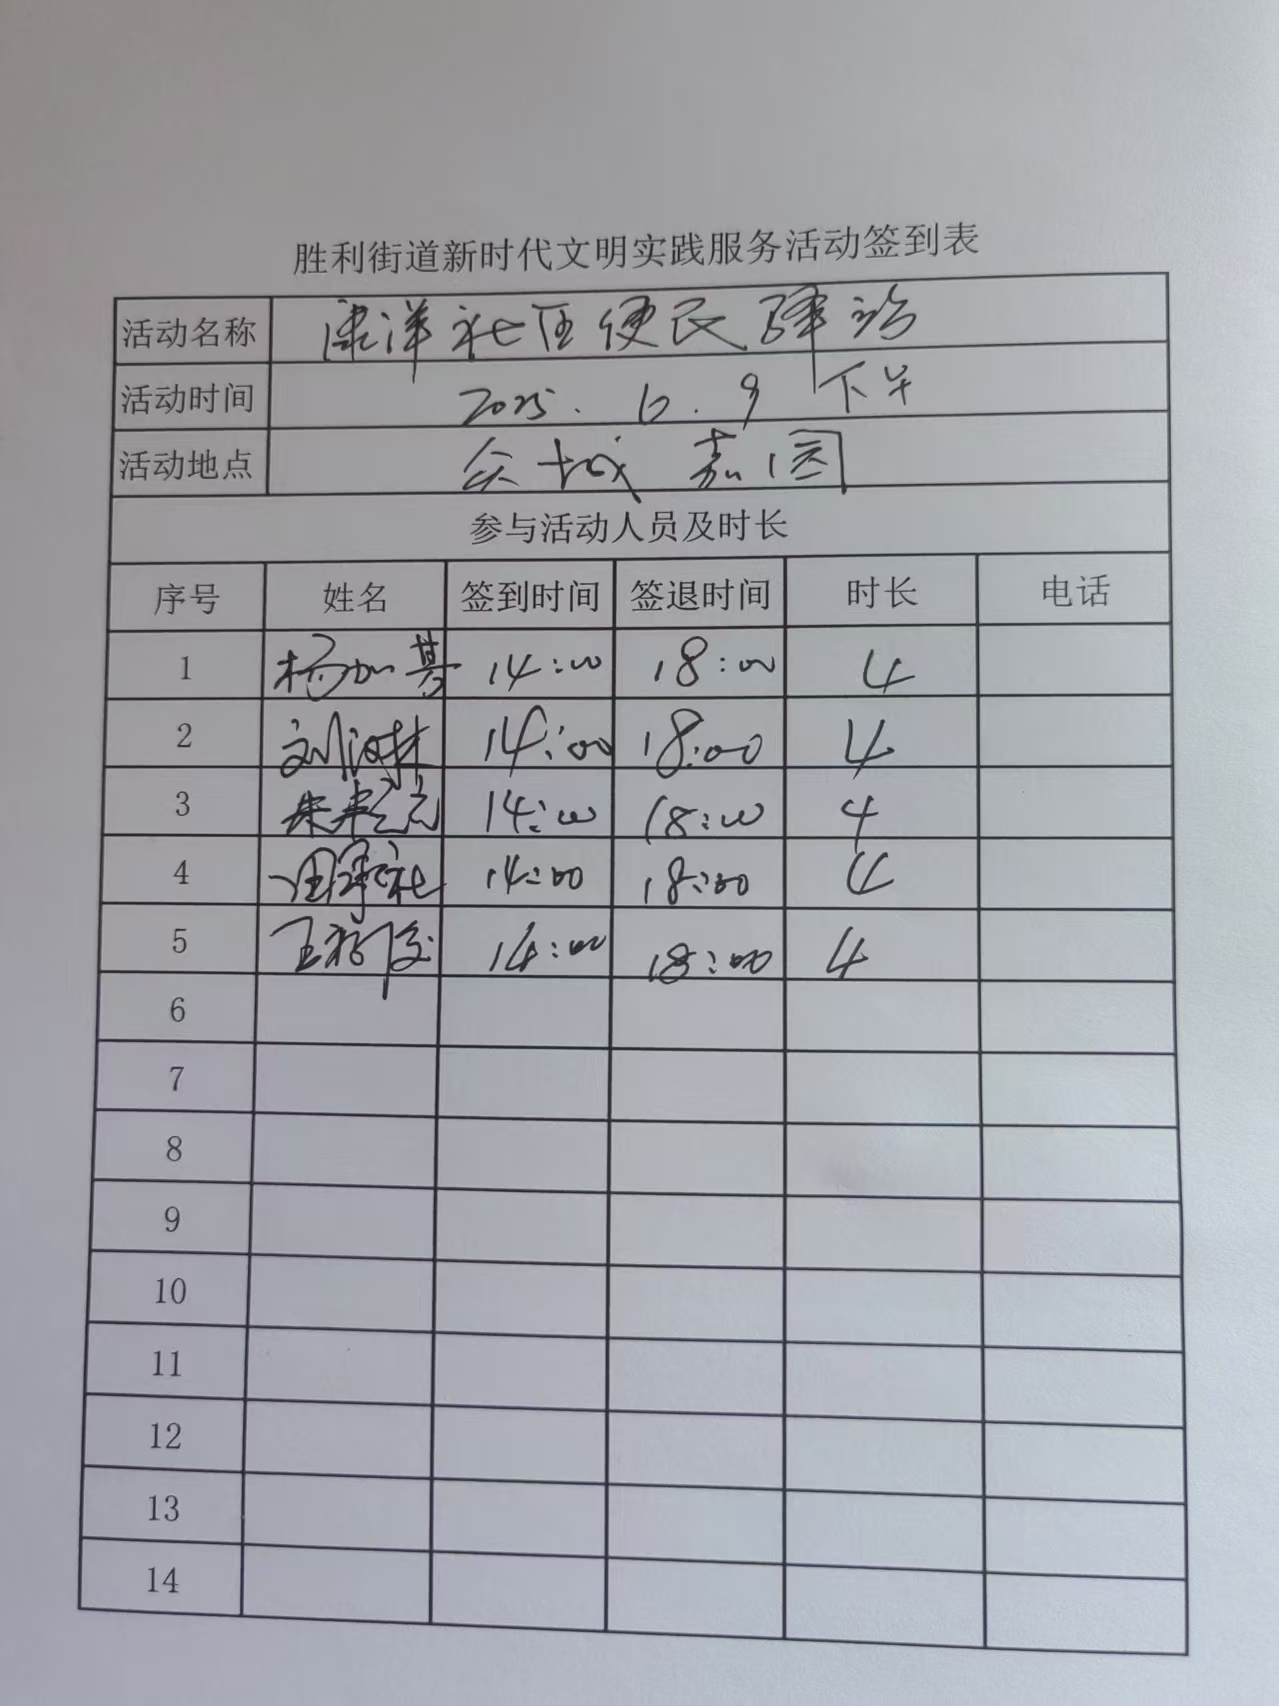 胜利街道新时代文明实践服务活动签到表
活动名称 津洋社区便民驿站
活动时间 2025.6.9 下午
活动地点 众城嘉园
参与活动人员及时长
序号 姓名 签到时间 签退时间 时长 电话
1 杨加基 14:00 18:00 4
2 14:00 18:00 4
3 14:00 18:00 4
4 14:00 18:00 4
5 14:00 18:00 4
6
7
8
9
10
11
12
13
14